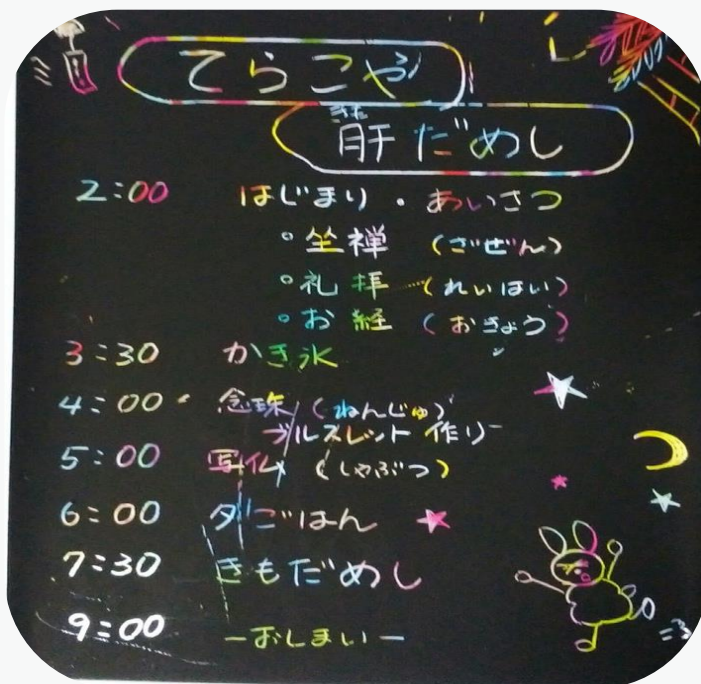 てらこや
肝だめし
2:00 はじまり・あいさつ
。坐禅 (ざぜん)
。礼拝 (れいはい)
。お経 (おきょう)
3:30 かき氷
4:00 念珠 (ねんじゅ)
ブレスレット作り
5:00 写仏 (しゃぶつ)
6:00 夕ごはん
7:30 きもだめし
9:00 ーおしまいー